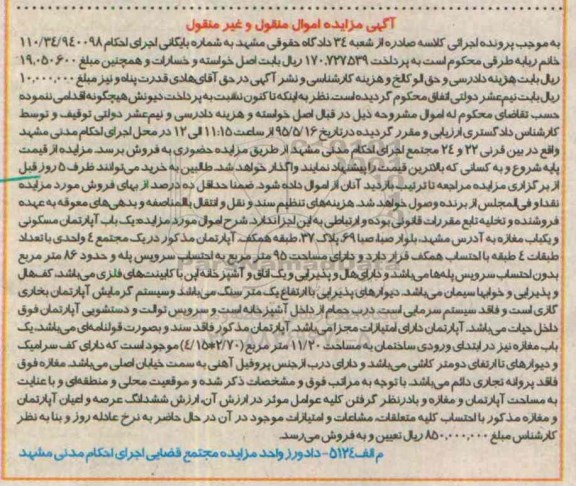 آگهی مزایده اموال منقول و غیر منقول
به موجب پرونده اجرائی کلاسه صادره از شعبه ۳٤ دادگاه حقوقی مشهد به شماره بایگانی اجرای احکام ۱۱۰/۳٤/۹٤۰۰۹۸
خانم ربابه طرقی محکوم است به پرداخت ۱۷۰.۷۲۷.۵۳۹ ریال بابت اصل خواسته و خسارات و همچنین مبلغ ۱۹.۰۵۰.۶۰۰
ریال بابت هزینه دادرسی و حق الوکالخ و هزینه کارشناسی و نشر آگهی در حق آقای هادی قدرت پناه و نیز مبلغ ۱۰.۰۰۰.۰۰۰
ریال بابت نیم عشر دولتی اتفاق محکوم گردیده است. نظر به اینکه تاکنون نسبت به پرداخت دیونش هیچگونه اقدامی ننموده
حسب تقاضای محکوم له اموال مشروحه ذیل در قبال اصل خواسته و هزینه دادرسی و نیم عشر دولتی توقیف و توسط
کارشناس دادگستری ارزیابی و مقرر گردیده در تاریخ ۹۵/۵/۱۶ از ساعت ۱۱:۱۵ الی ۱۲ در محل اجرای احکام مدنی مشهد
واقع در بین قرنی ۲۲ و ۲٤ مجتمع اجرای احکام مدنی مشهد از طریق مزایده حضوری به فروش برسد. مزایده از قیمت
پایه شروع و به کسانی که بالاترین قیمت را پیشنهاد نمایند واگذار خواهد شد. طالبین به خرید می توانند ظرف ۵ روز قبل
از برگزاری مزایده مراجعه تا ترتیب بازدید آنان از اموال داده شود. ضمنا حداقل ده درصد از بهای فروش مورد مزایده
نقدا و فی المجلس از برنده وصول خواهد شد. هزینه های تنظیم سند و نقل و انتقال بالمناصفه و بدهی های معوقه به عهده
فروشنده و تخلیه تابع مقررات قانونی بوده و ارتباطی به این اجرا ندارد. شرح اموال مورد مزایده یک باب آپارتمان مسکونی
و یکباب مغازه به آدرس مشهد، بلوار صبا، صبا ۶۹، پلاک ۳۷، طبقه همکف. آپارتمان مذکور در یک مجتمع ٤ واحدی با تعداد
طبقات ٤ طبقه با احتساب همکف قرار دارد و دارای مساحت ۹۵ متر مربع به احتساب سرویس پله و حدود ۸۶ متر مربع
بدون احتساب سرویس پله ها می باشد. و دارای هال و پذیرایی و یک اتاق و آشپزخانه اپن با کابینت های فلزی می باشد. کف هال
و پذیرایی و خوابها سیمان می باشد. دیوارهای پذیرایی با ارتفاع یک متر سنگ می باشد و سیستم گرمایش آپارتمان بخاری
گازی است و فاقد سیستم سرمایی است. درب حمام از داخل آشپزخانه است و سرویس توالت و دستشویی آپارتمان فوق
داخل حیات می باشد. آپارتمان دارای امتیازات مجزا می باشد. آپارتمان مذکور فاقد سند و بصورت قولنامه ای می باشد. یک
باب مغازه نیز در ابتدای ورودی ساختمان به مساحت ۱۱/۲۰ متر مربع (۲/۷۰*٤/۱۵) موجود است که دارای کف سرامیک
و دیوارهای تا ارتفای دومتر کاشی می باشد و دارای درب از جنس پروفیل آهنی به سمت خیابان اصلی می باشد. مغازه فوق
فاقد پروانه تجاری دائم می باشد. با توجه به مراتب فوق و مشخصات ذکر شده و موقعیت محلی و منطقه ای و با عنایت
به مساحت آپارتمان و مغازه و بادرنظر گرفتن کلیه عوامل موثر در ارزش آن، ارزش ششدانگ عرصه و اعیان آپارتمان
و مغازه مذکور با احتساب کلیه متعلقات، مشاعات و امتیازات موجود در آن در حال حاضر به نرخ عادله روز و بنا به نظر
کارشناس مبلغ ۸۵۰.۰۰۰.۰۰۰ ریال تعیین و به فروش می رسد.
م الف ۵۱۲٤- دادورز واحد مزایده مجتمع قضایی اجرای احکام مدنی مشهد